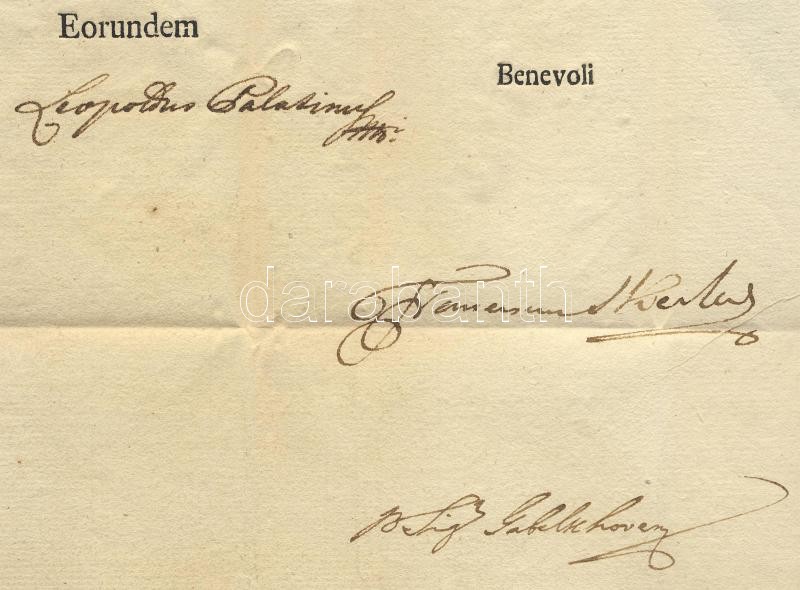 Eorundem
Benevoli
Leopoldus Palatinus
darabanth
Franciscus Skerlecz
B. Sigm Gabelkhoven